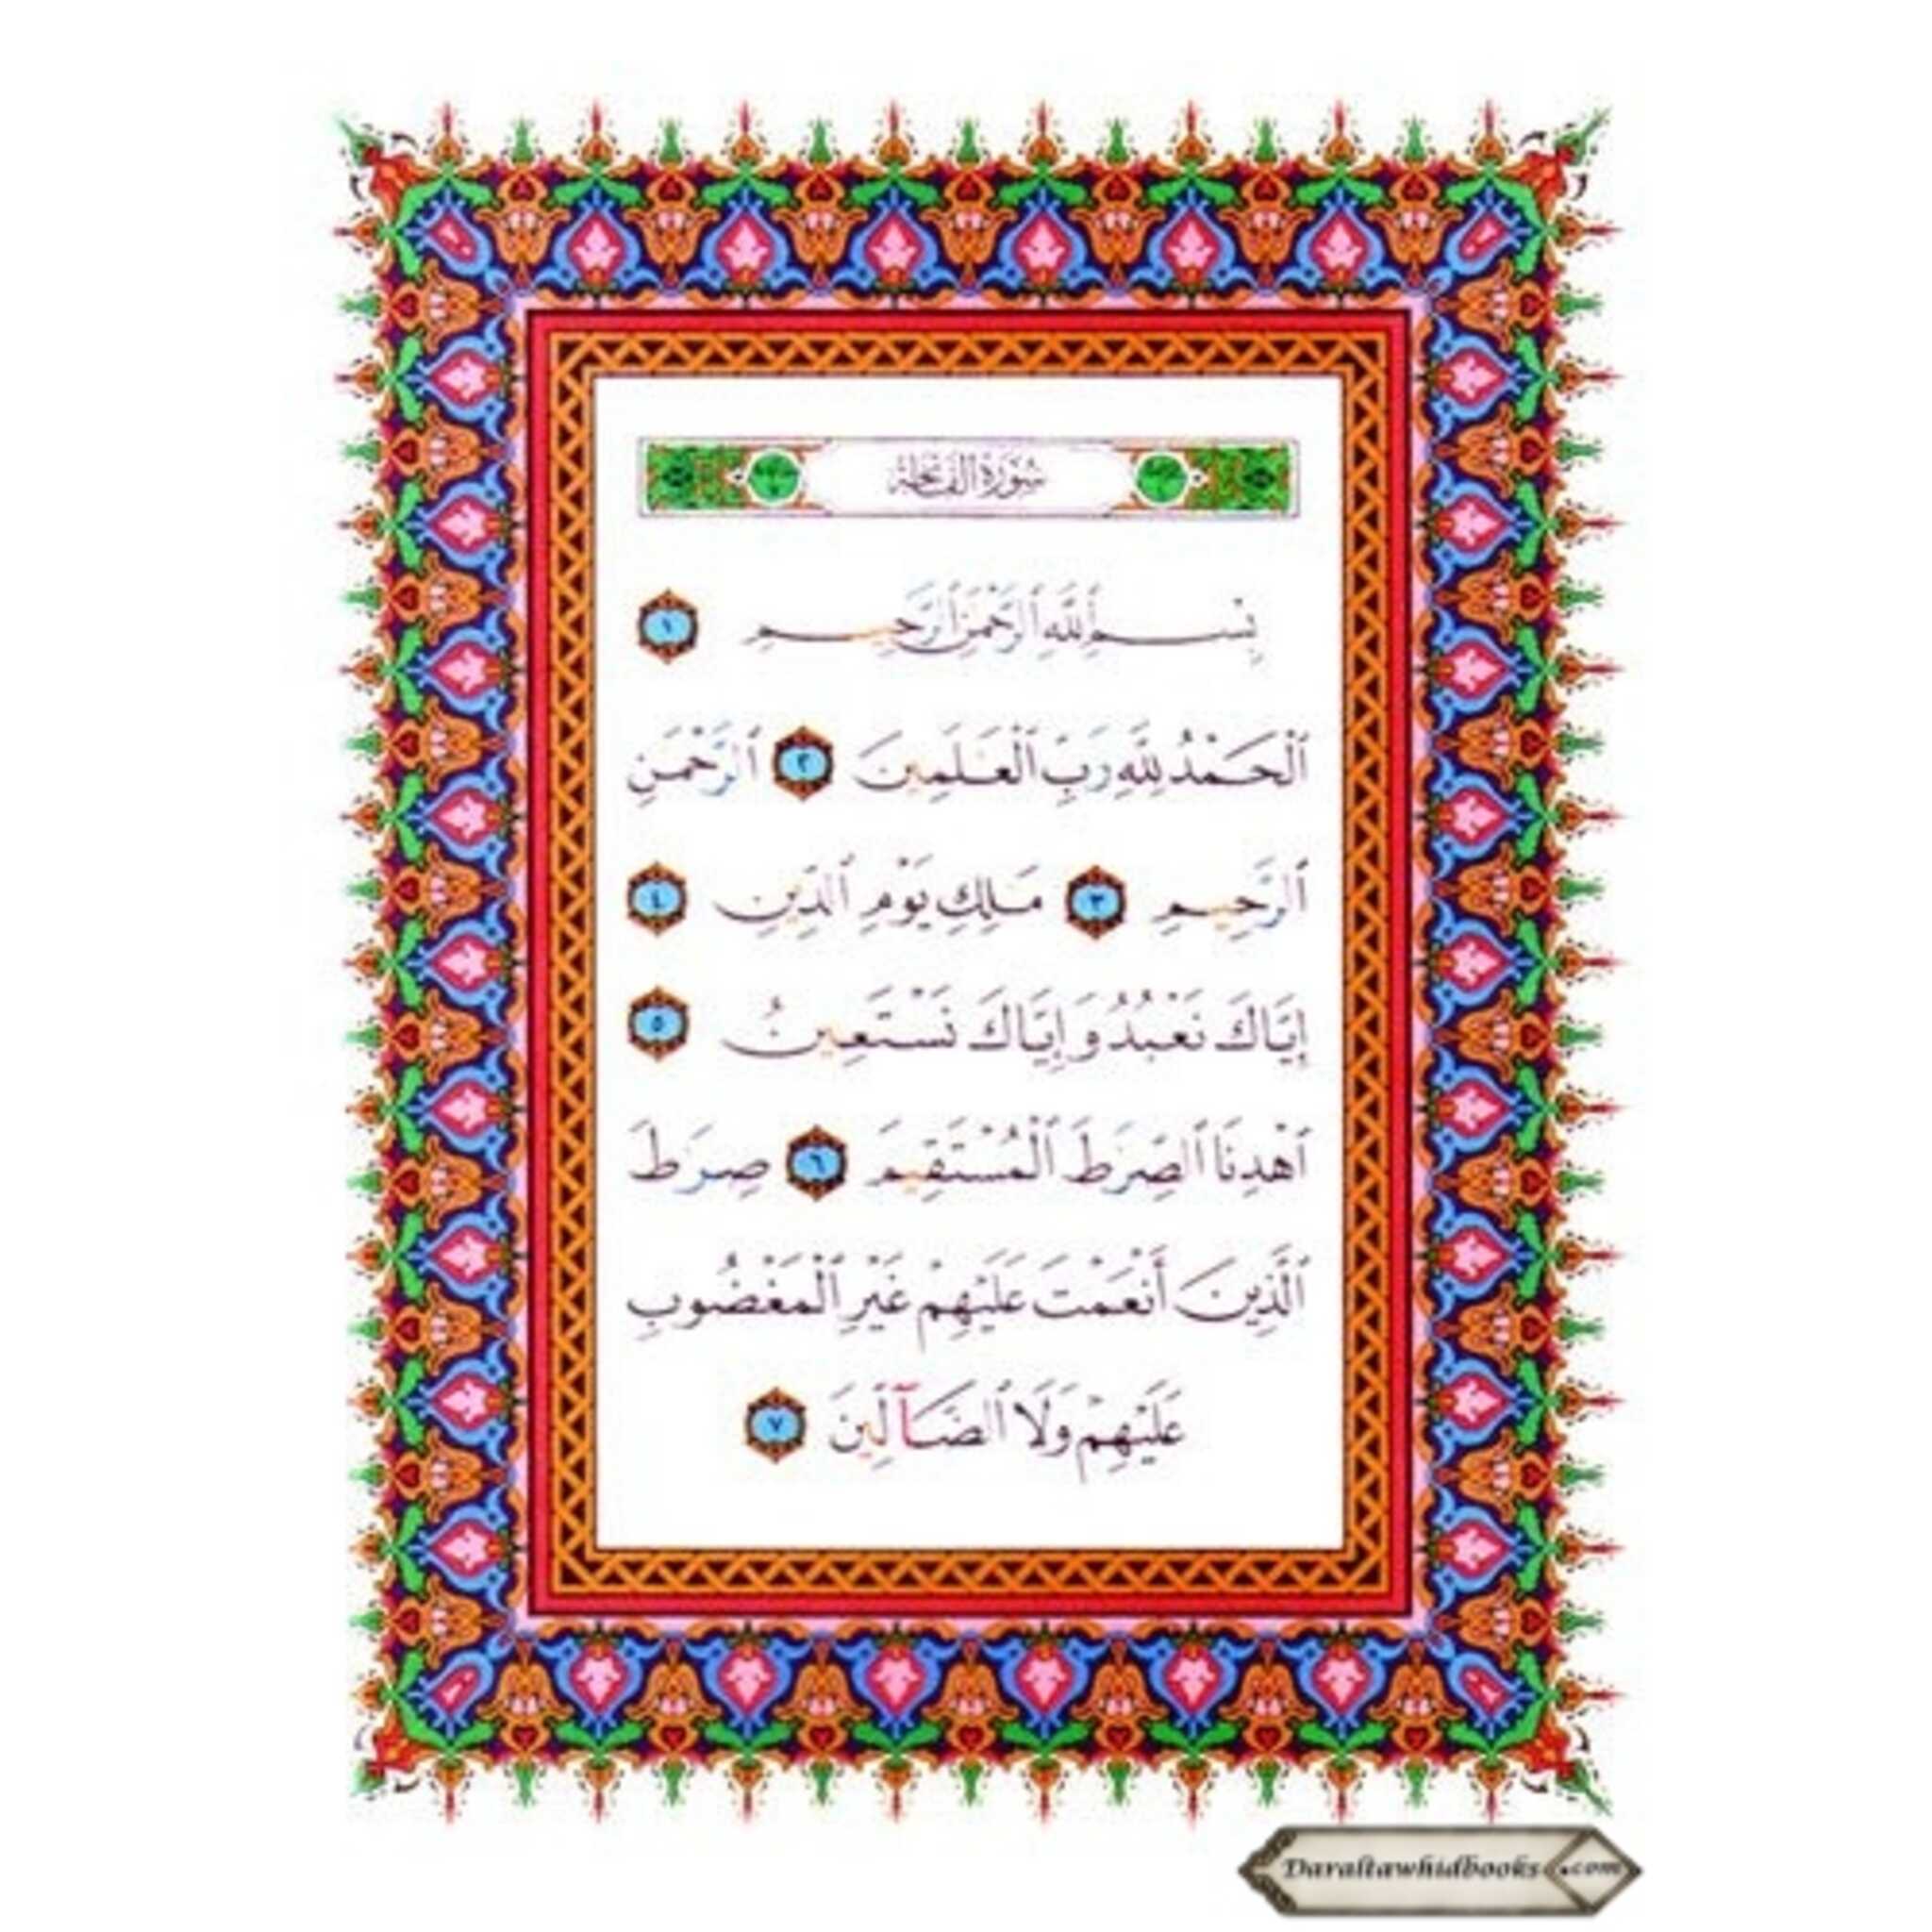 سُورَةُ الفَاتِحَةِ
بِسْمِ ٱللَّهِ ٱلرَّحْمَٰنِ ٱلرَّحِيمِ ١
ٱلْحَمْدُ لِلَّهِ رَبِّ ٱلْعَٰلَمِينَ ٢ ٱلرَّحْمَٰنِ
ٱلرَّحِيمِ ٣ مَٰلِكِ يَوْمِ ٱلدِّينِ ٤
إِيَّاكَ نَعْبُدُ وَإِيَّاكَ نَسْتَعِينُ ٥
ٱهْدِنَا ٱلصِّرَٰطَ ٱلْمُسْتَقِيمَ ٦ صِرَٰطَ
ٱلَّذِينَ أَنْعَمْتَ عَلَيْهِمْ غَيْرِ ٱلْمَغْضُوبِ
عَلَيْهِمْ وَلَا ٱلضَّآلِّينَ ٧
Daraltawhidbooks.com